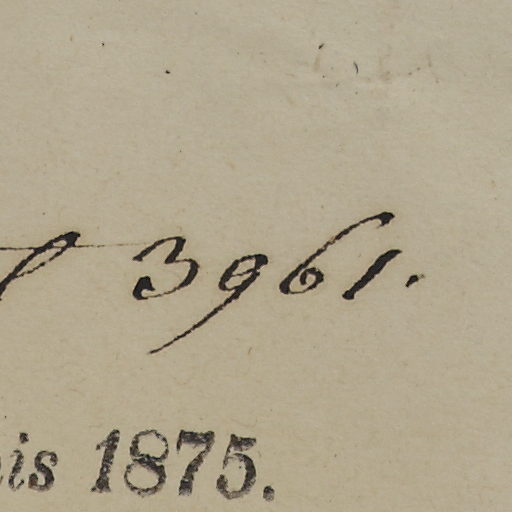 3961.
is 1875.